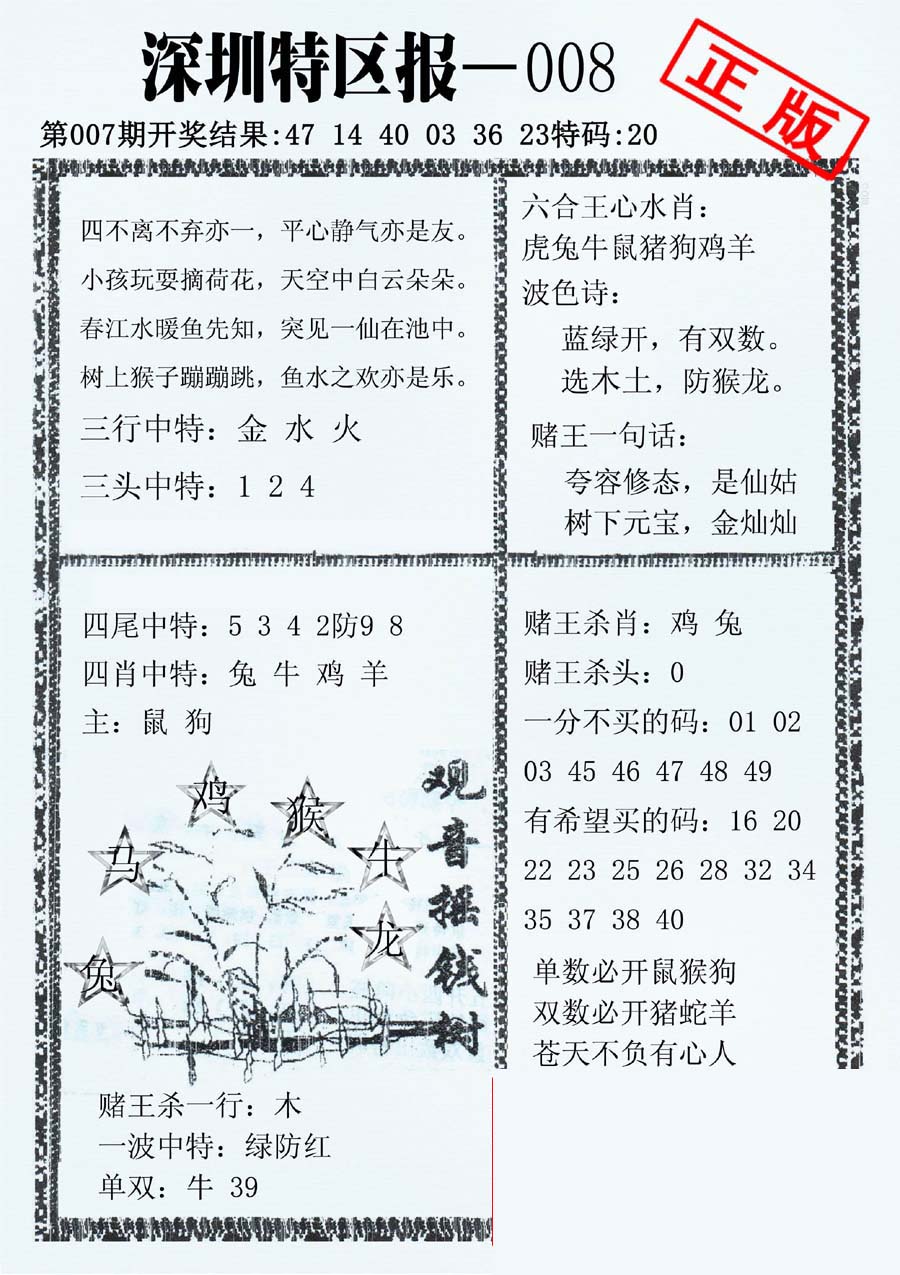 深圳特区报—008
正版
第007期开奖结果:47 14 40 03 36 23特码:20
四不离不弃亦一，平心静气亦是友。
小孩玩耍摘荷花，天空中白云朵朵。
春江水暖鱼先知，突见一仙在池中。
树上猴子蹦蹦跳，鱼水之欢亦是乐。
三行中特：金 水 火
三头中特：1 2 4
六合王心水肖：
虎兔牛鼠猪狗鸡羊
波色诗：
蓝绿开，有双数。
选木土，防猴龙。
赌王一句话：
夸容修态，是仙姑
树下元宝，金灿灿
四尾中特：5 3 4 2防9 8
四肖中特：兔 牛 鸡 羊
主：鼠 狗
鸡
猴
马
牛
龙
兔
观音摇钱树
赌王杀一行：木
一波中特：绿防红
单双：牛 39
赌王杀肖：鸡 兔
赌王杀头：0
一分不买的码：01 02
03 45 46 47 48 49
有希望买的码：16 20
22 23 25 26 28 32 34
35 37 38 40
单数必开鼠猴狗
双数必开猪蛇羊
苍天不负有心人